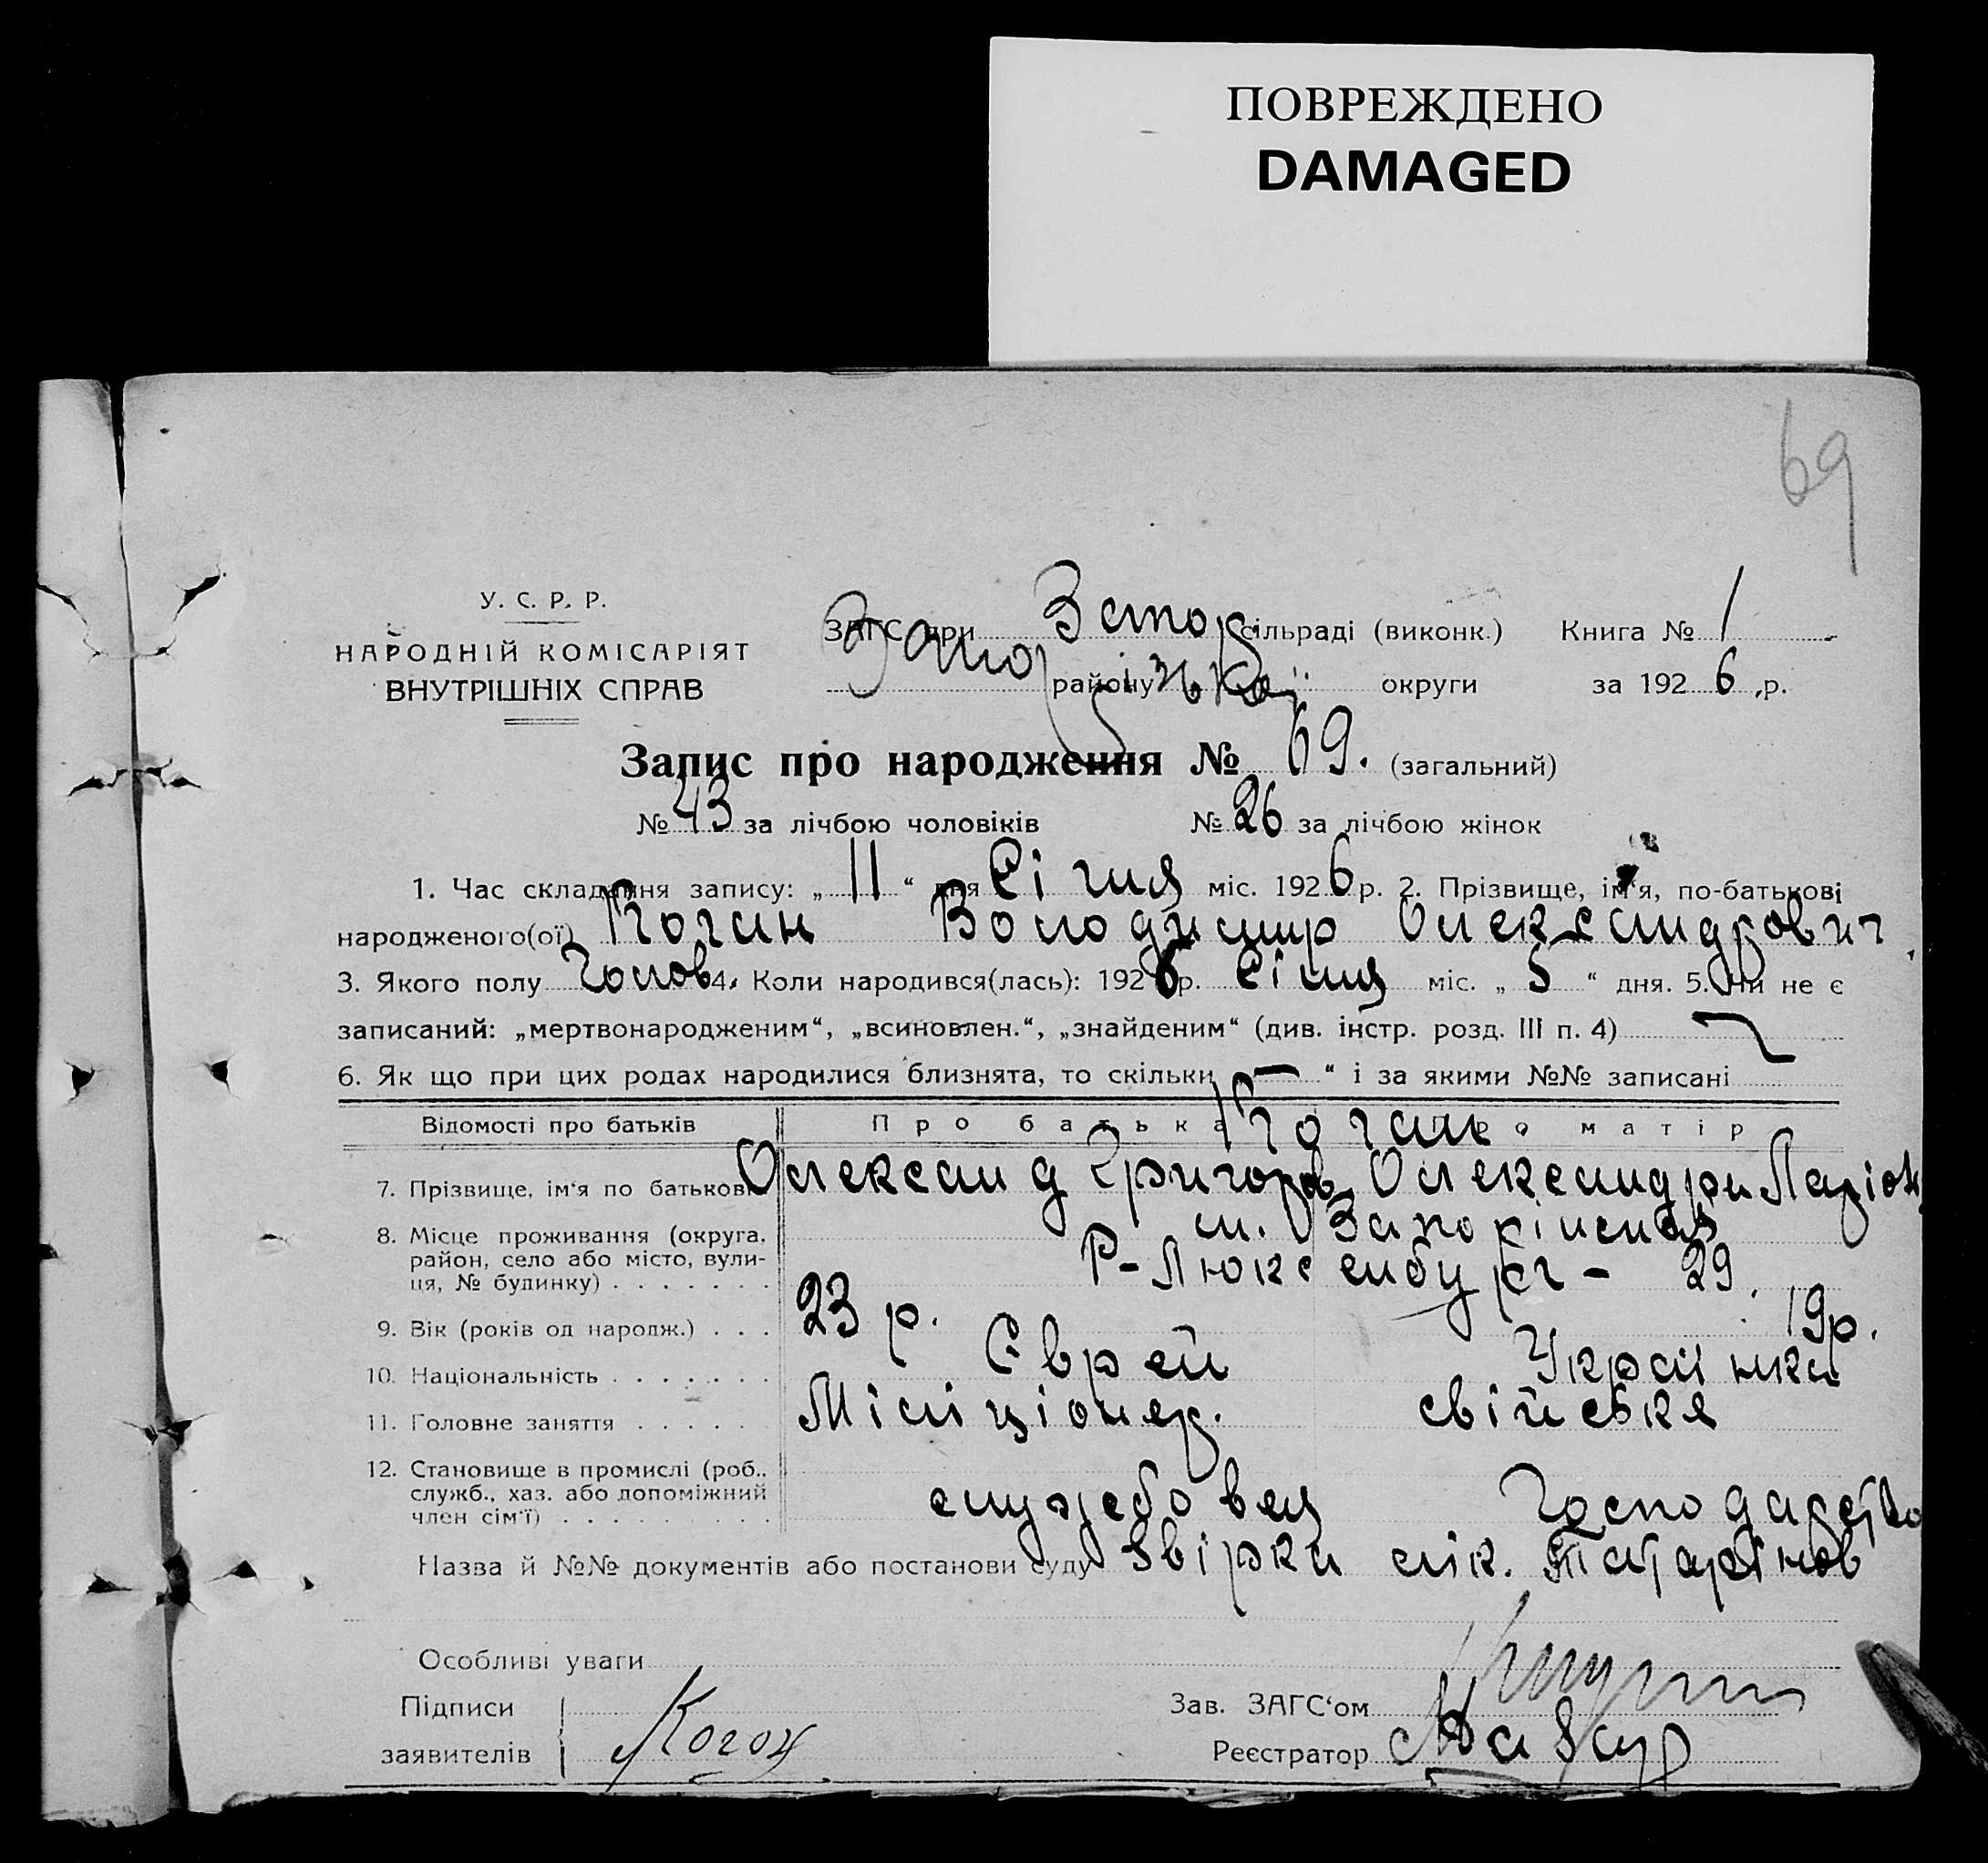 ПОВРЕЖДЕНО
DAMAGED
69
У. С. Р. Р.
НАРОДНІЙ КОМІСАРІЯТ
ВНУТРІШНІХ СПРАВ
ЗАГС при сільраді (виконк.) Книга № 1
Запорізької району округи за 1926 р.
Запис про народження № 69. (загальний)
№ 43 за лічбою чоловіків № 26 за лічбою жінок
1. Час складання запису: „ 11 “ дня Січня міс. 1926 р. 2. Прізвище, ім'я, по-батькові
народженого(ої) Коган Володимир Олександрович
3. Якого полу Чолов. 4. Коли народився(лась): 1926 р. Січня міс. „ 5 “ дня. 5. Чи не є
записаний: „мертвонародженим“, „всиновлен.“, „знайденим“ (див. інстр. розд. III п. 4)
6. Як що при цих родах народилися близнята, то скільки „ — “ і за якими №№ записані
Відомості про батьків Про батька Про матір
Коган
7. Прізвище, ім'я по батькові Олександ Григоров. Олександра Ларіон
8. Місце проживання (округа, м. Запоріжжя
район, село або місто, вули- Р-Люксембург - 29.
ця, № будинку)
9. Вік (років од народж.) 23 р. 19 р.
10. Національність Єврей Українка
11. Головне заняття Міліціонер. свійське
12. Становище в промислі (роб.,
служб., хаз. або допоміжний службовец Господарство
член сім'ї)
Назва й №№ документів або постанови суду Звірка лік. Татарінов
Особливі уваги
Підписи Зав. ЗАГС'ом
заявителів Коган Реєстратор Мазур